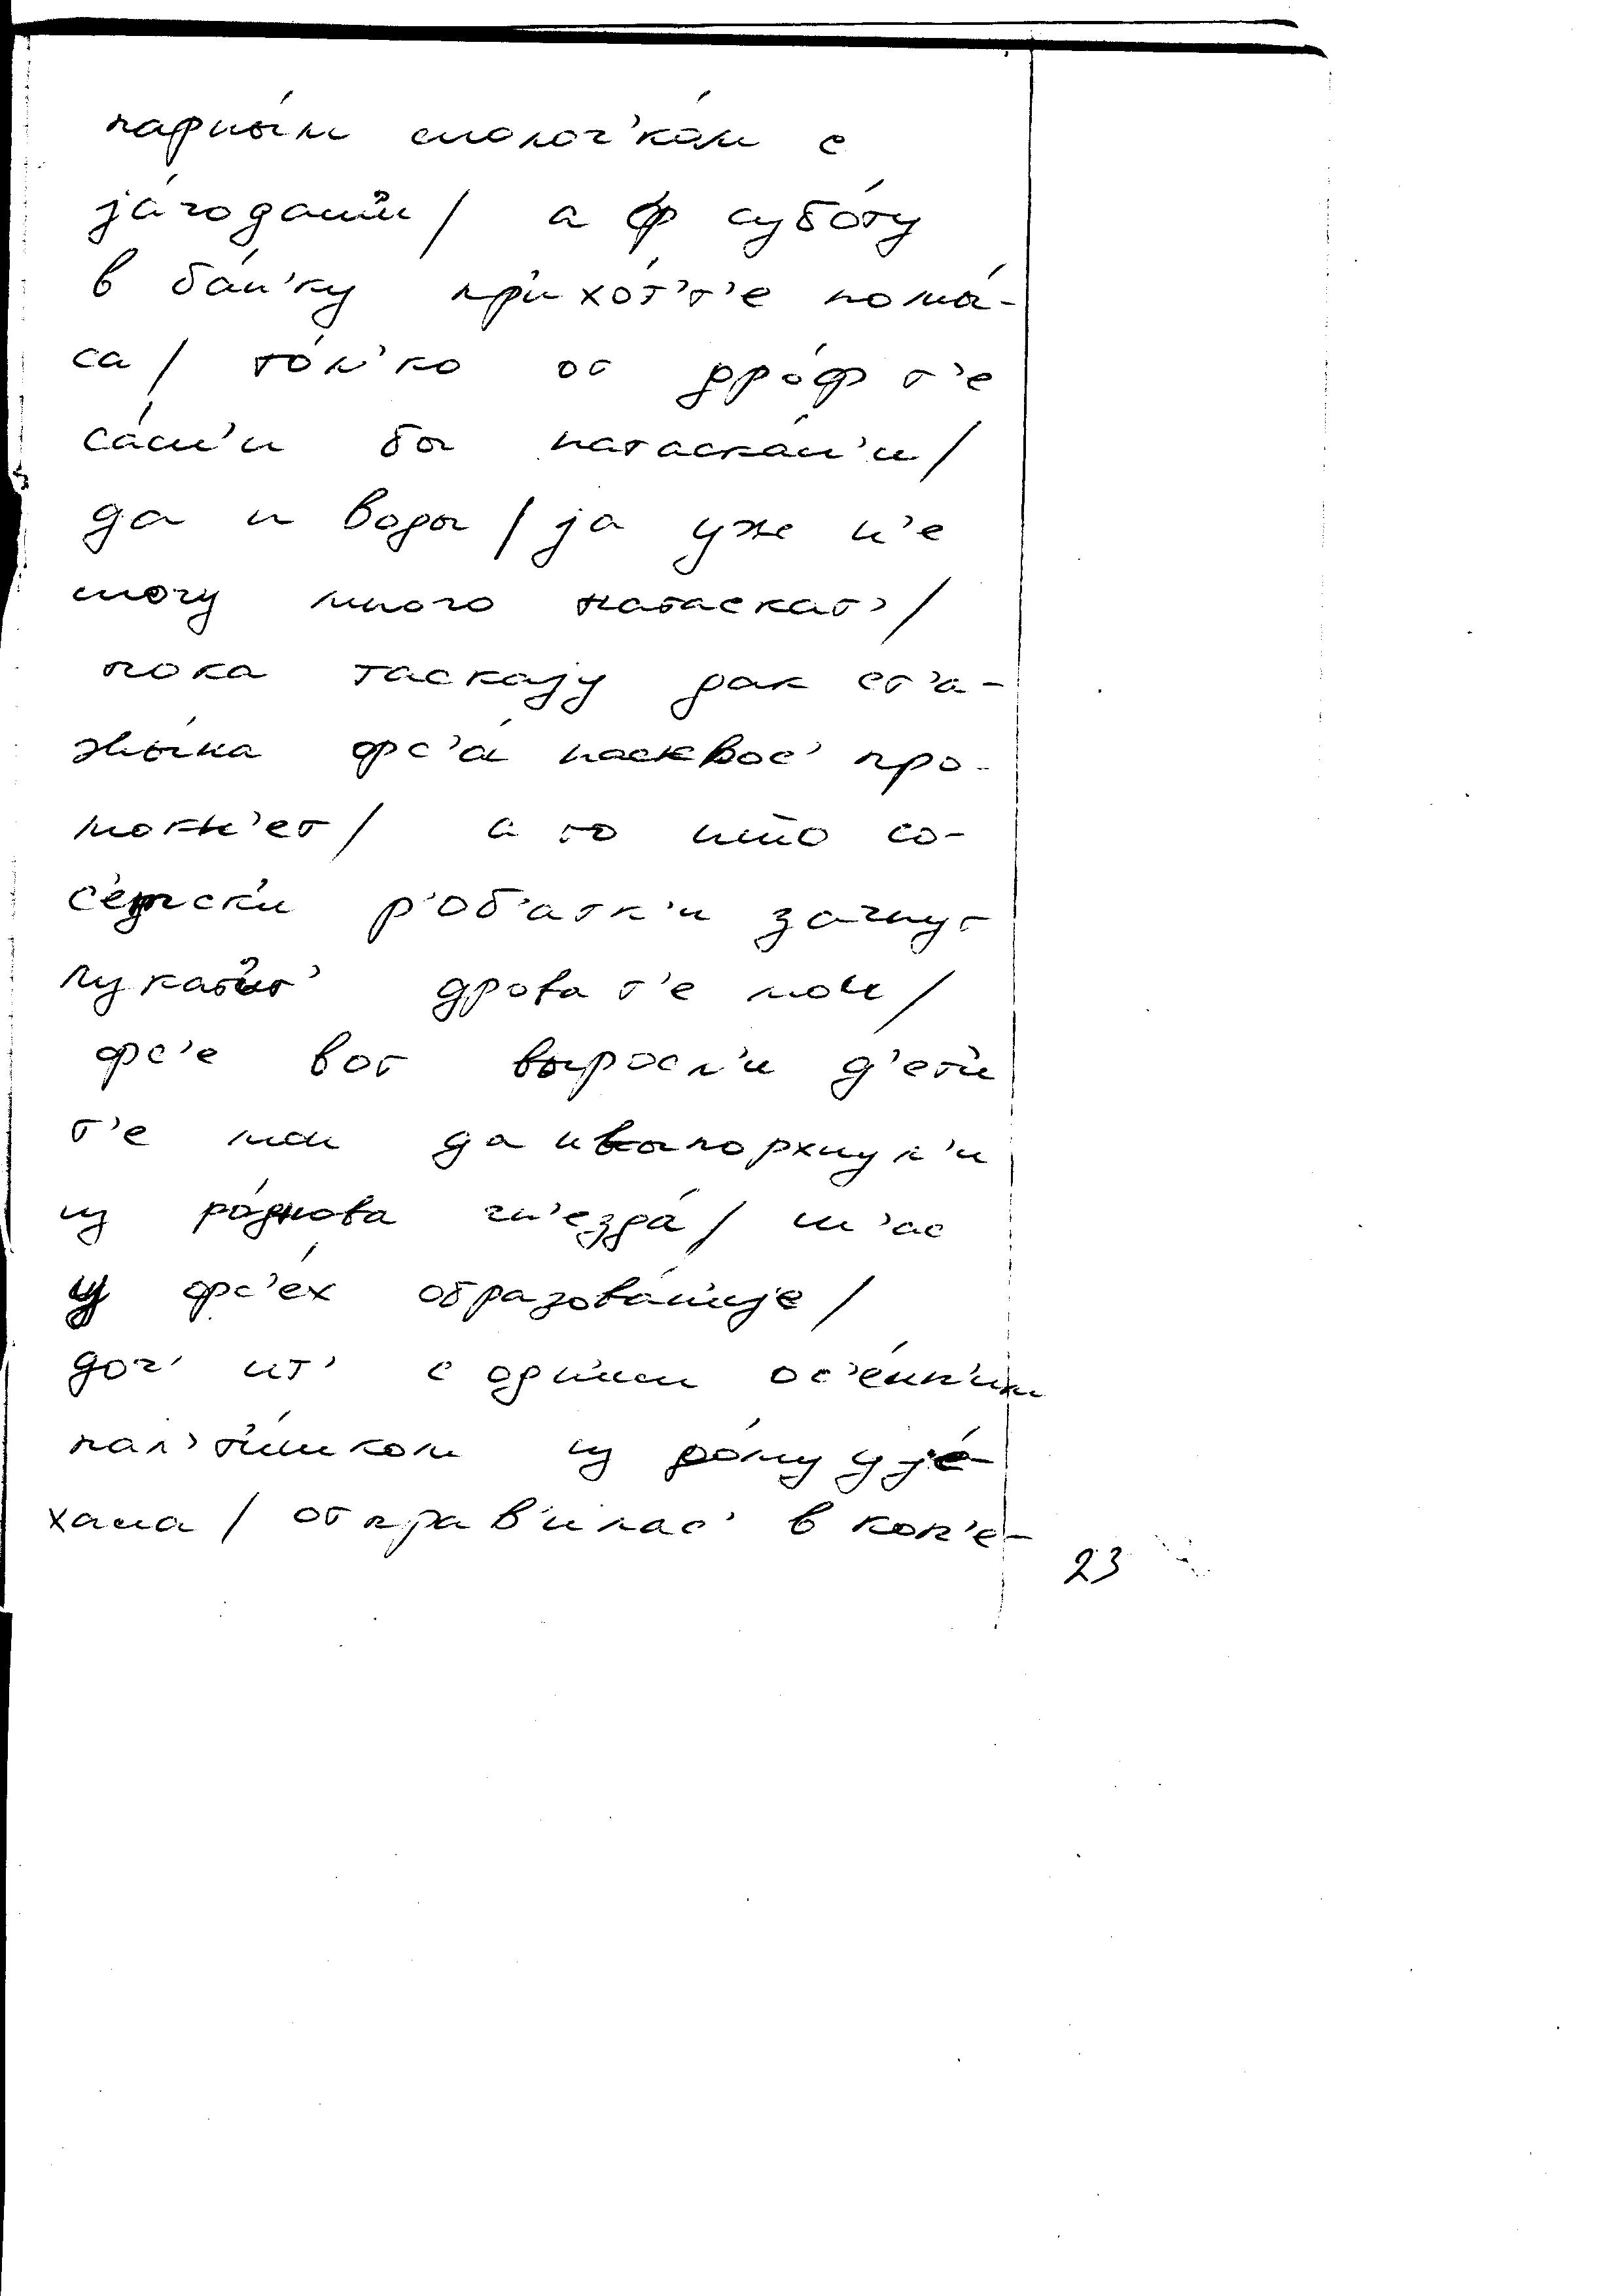 парны́м молоч'ко́м с
já годам'и / а ф субо́ту
в ба́н'ку пр'ихо́т'т'е помы́-
са / то́л'ко ос дро́ф т'е
са́м'и бы натаска́л'и /
да и воды / jа уже н'е
могу много натаскат' /
пока таскаjу дак ст'а-
жы́нка фс'а́ насквос' про-
мокн'ет / а то што со-
с'едск'и р'об'атк'и зачнут
пукат' дрова т'е мои /
фс'е вот выросл'и д'ет'и
т'е мои да и выпорхнул'и
из ро́днова гн'езда́ / ш'ас
у фс'е́х образова́н'иjе /
доч' ит' с одн'им ос'е́нн'им
пал'т'и́шком из до́му уjе́-
хала / отправ'илас' в кон'е-
23